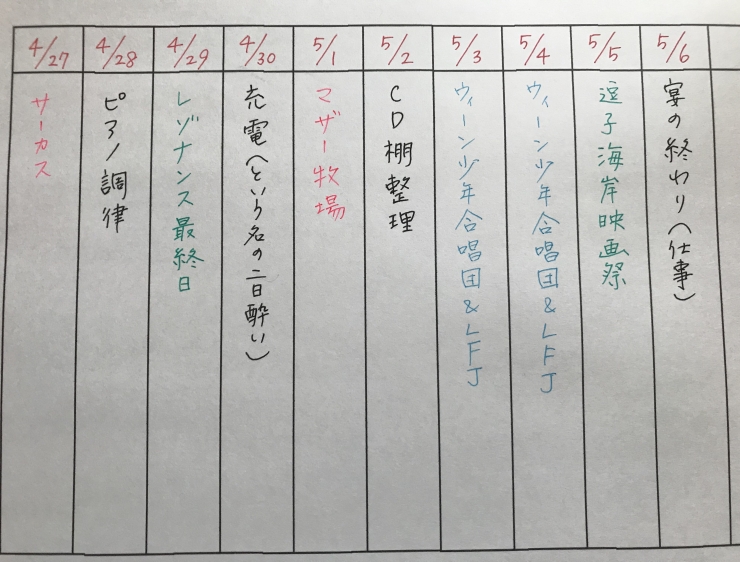 4/27
サーカス
4/28
ピアノ調律
4/29
レゾナンス最終日
4/30
充電(という名の二日酔い)
5/1
マザー牧場
5/2
CD棚整理
5/3
ウィーン少年合唱団&LFJ
5/4
ウィーン少年合唱団&LFJ
5/5
逗子海岸映画祭
5/6
宴の終わり(仕事)